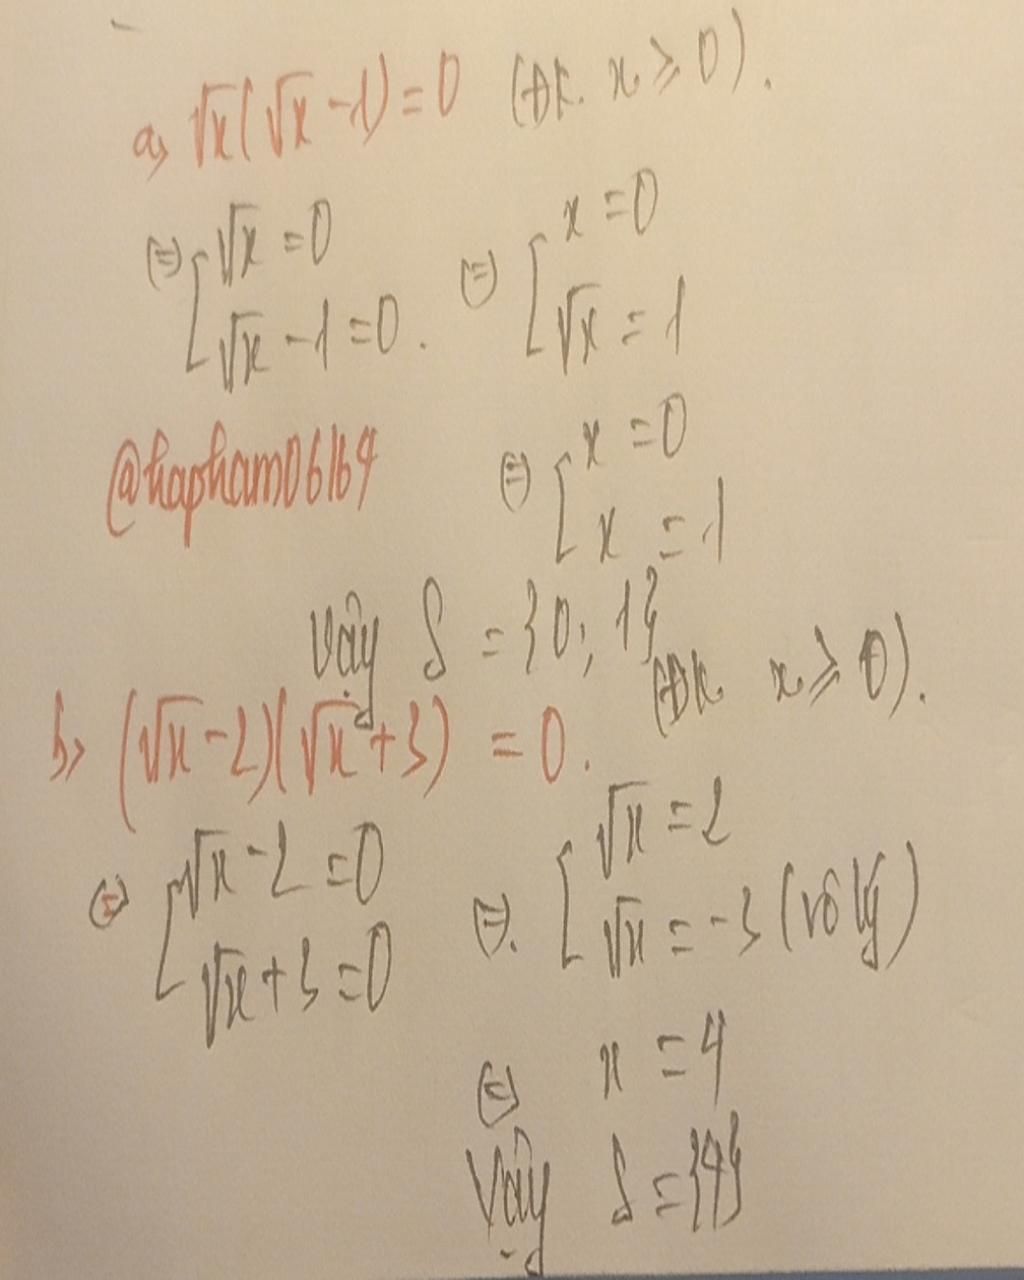 a, √x(√x -1) = 0 (ĐK. x ⩾ 0).
(=) [ √x = 0 (=) [ x = 0
√x - 1 = 0. √x = 1
@hapham06164 (=) [ x = 0
x = 1
Vậy S = {0; 1}
b, (√x - 2)(√x + 3) = 0. (ĐK x ⩾ 0).
(=) [ √x - 2 = 0 (=). [ √x = 2
√x + 3 = 0 √x = -3 (vô lý)
(=) x = 4
Vậy S = {4}